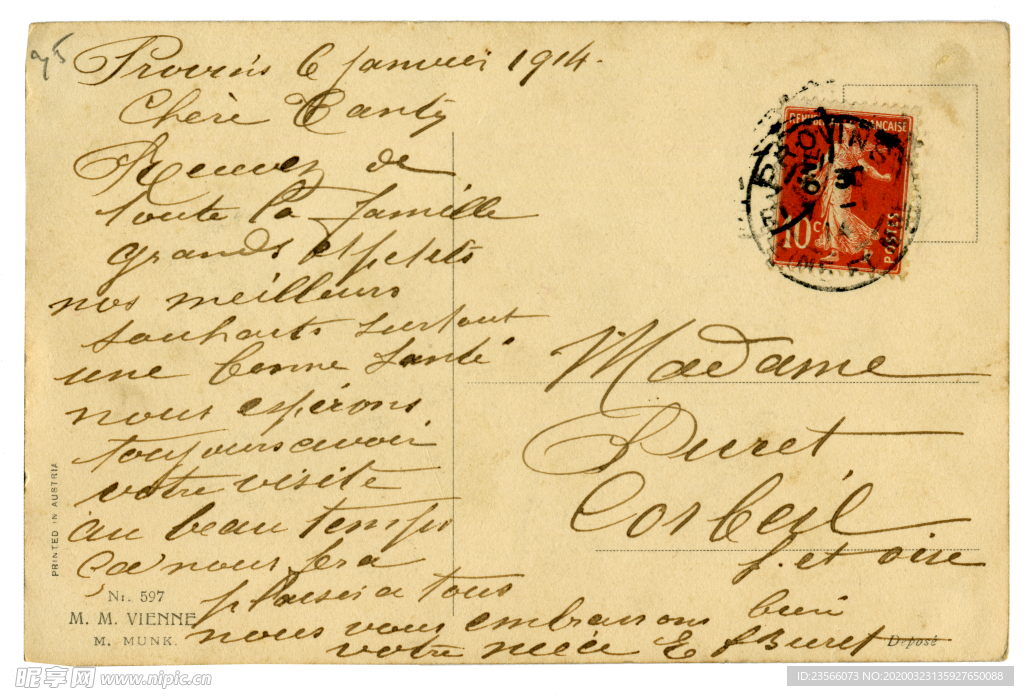 95
Provins 6 janvier 1914.
Chère Tanty
Recevez de
toute la famille
grands et petits
nos meilleurs
souhaits surtout
une bonne santé
nous espérons
toujours avoir
votre visite
au beau temps
ça nous fera
plaisir a tous
nous vous embrassons bien
votre nièce E
REPUBLIQUE FRANÇAISE
PROVINS
10c
POSTES
Madame
Buret
Corbeil
S. et oise
PRINTED IN AUSTRIA
Nr. 597
M. M. VIENNE
M. MUNK.
Déposé
昵享网 www.nipic.cn
ID:23566073 NO:20200323135927650088